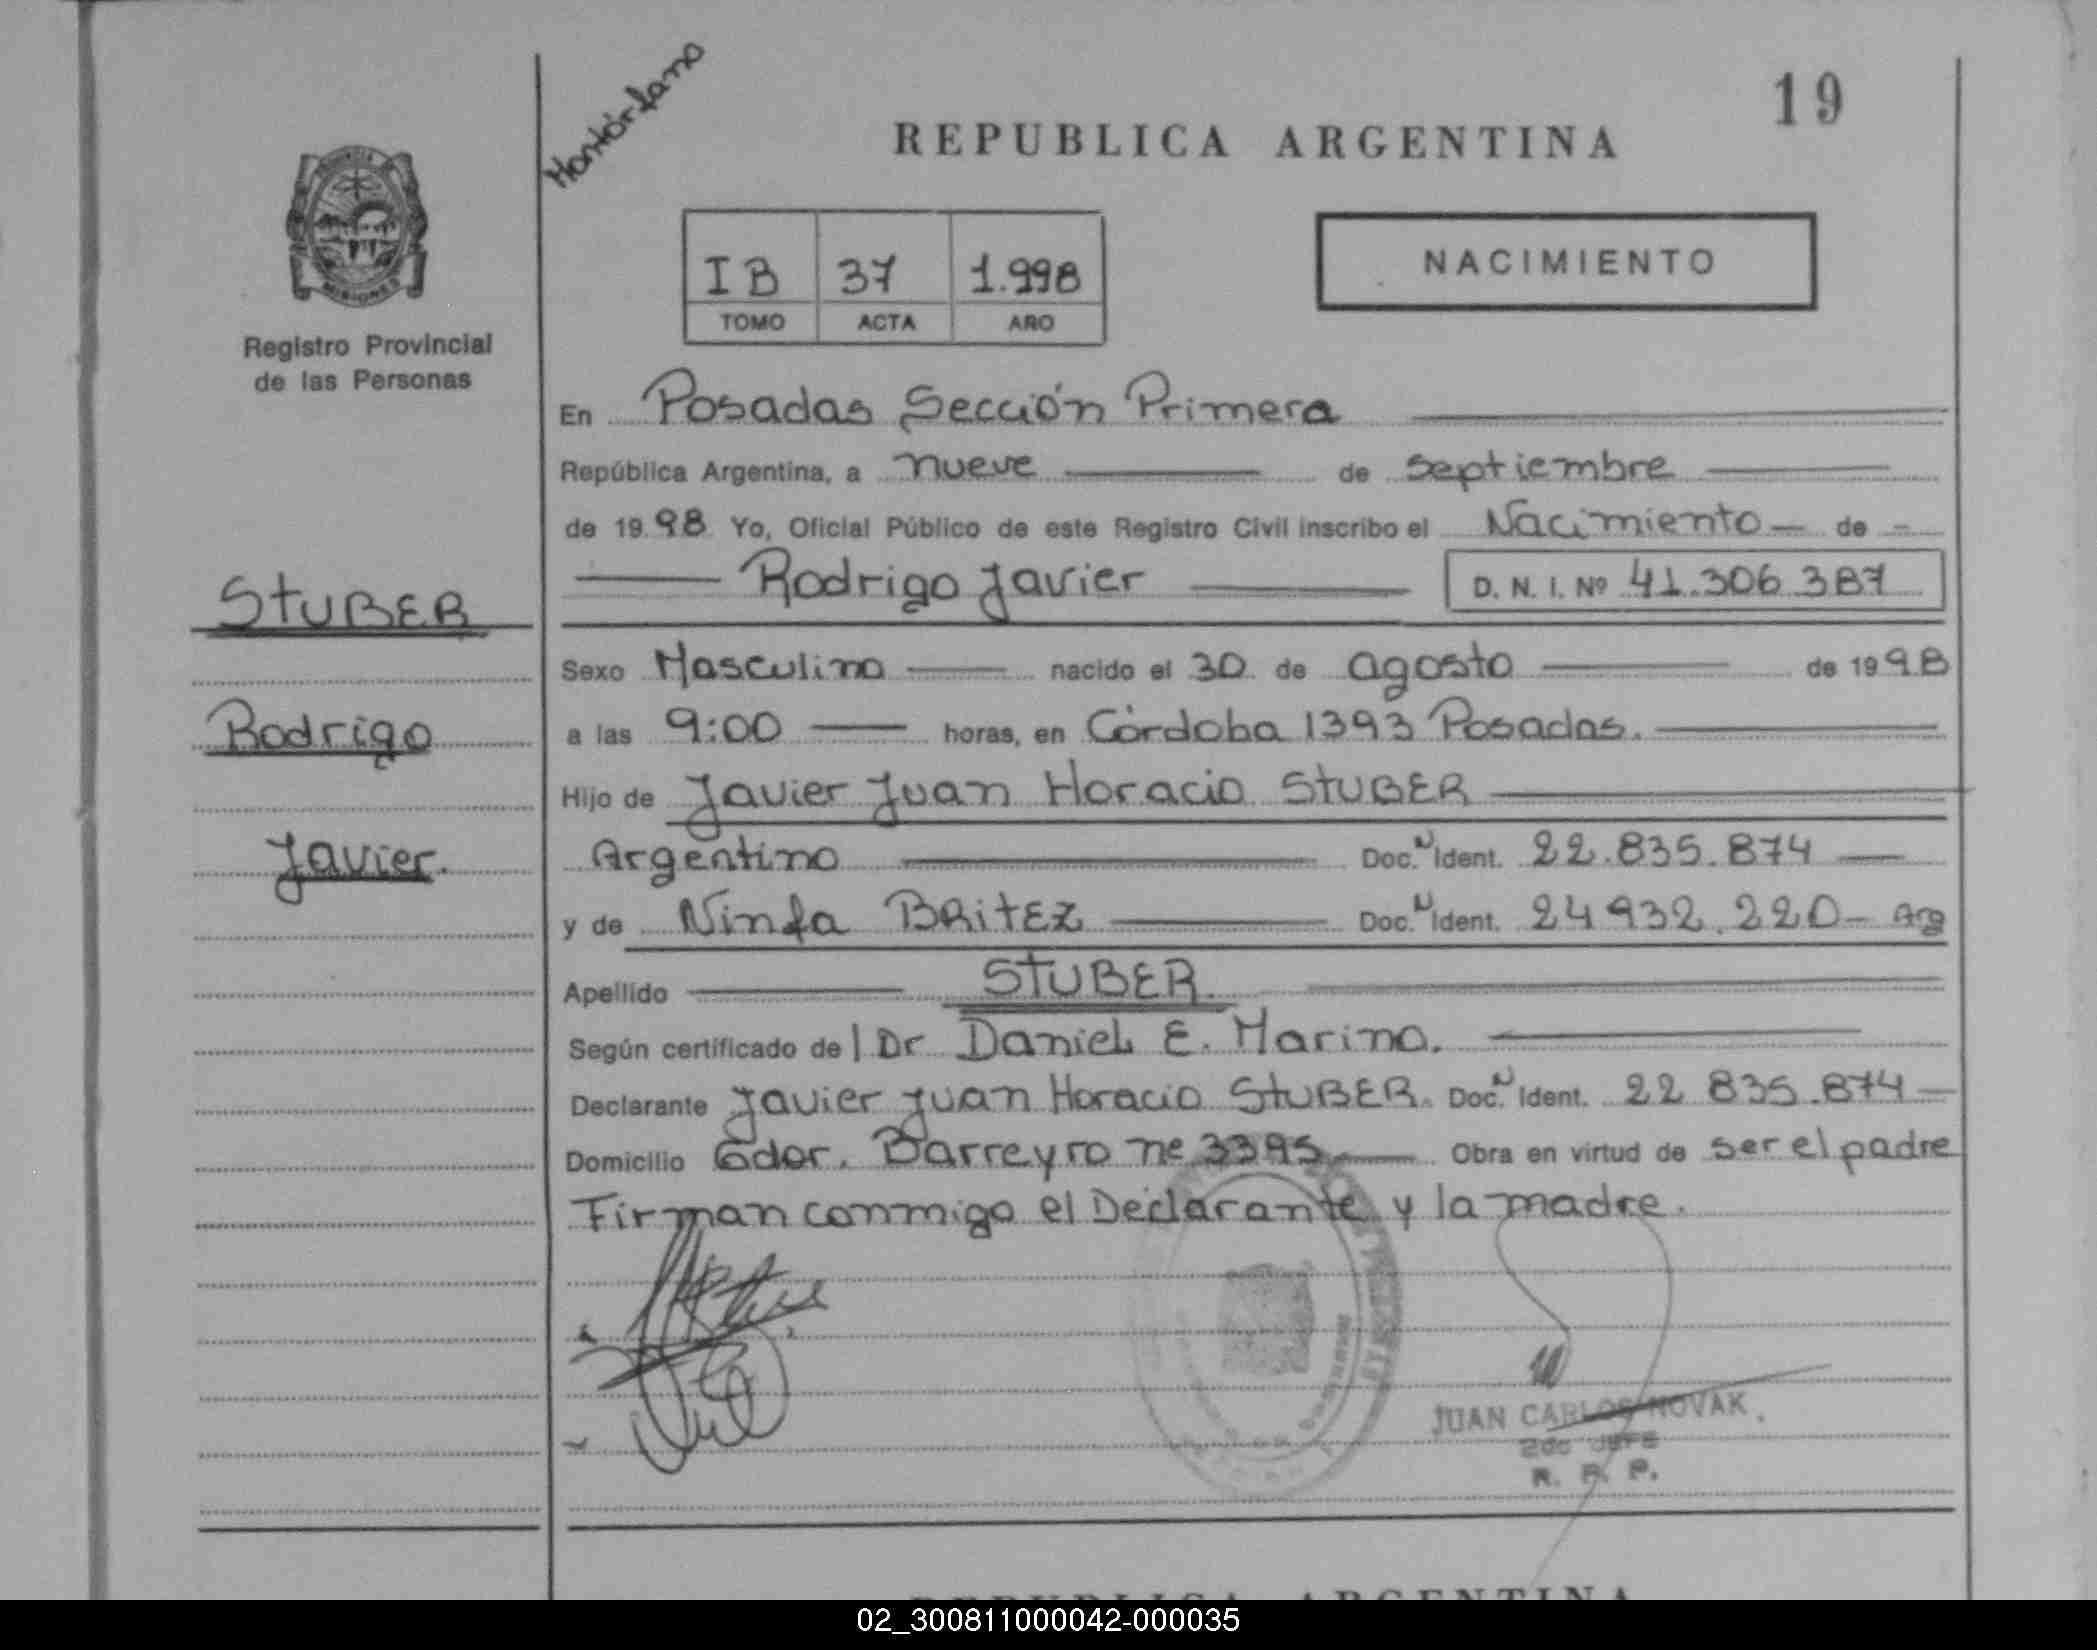 19
Montórfano
REPUBLICA ARGENTINA
MISIONES
Registro Provincial
de las Personas
IB 37 1.998
TOMO ACTA AÑO
NACIMIENTO
En Posadas Sección Primera
República Argentina, a nueve de septiembre
de 1998 Yo, Oficial Público de este Registro Civil inscribo el Nacimiento de
Rodrigo Javier D. N. I. Nº 41.306.387
STUBER
Rodrigo
Javier.
Sexo Masculino nacido el 30 de agosto de 1998
a las 9:00 horas, en Córdoba 1393 Posadas.
Hijo de Javier Juan Horacio STUBER
Argentino Doc. N Ident. 22.835.874
y de Ninfa BRITEZ Doc. N Ident. 24932.220 - Arg
Apellido STUBER
Según certificado de l Dr Daniel E. Marino.
Declarante Javier Juan Horacio STUBER. Doc. N Ident. 22 835.874
Domicilio Gdor. Barreyro nº 3395 Obra en virtud de ser el padre
Firman conmigo el Declarante y la madre.
JUAN CARLOS NOVAK
2do JEFE
R. P. P.
REPUBLICA ARGENTINA
02_300811000042-000035